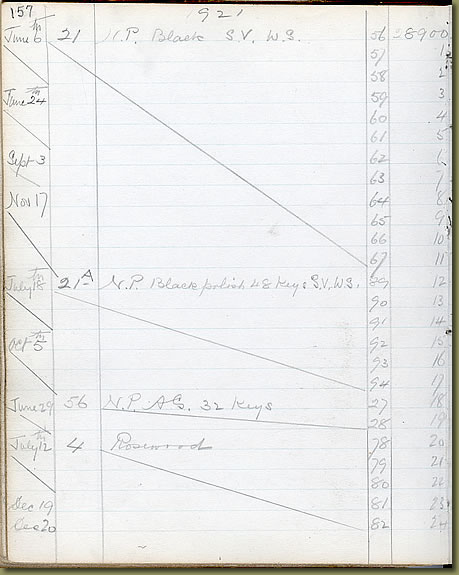 157 921
June 6th 21 N.P. Black S.V. W.S. 56 28900
57 1
58 2
June 24th 59 3
60 4
61 5
Sept 3 62 6
63 7
Nov 17 64 8
65 9
66 10
67 11
July 18th 21A N.P. Black polish 48 Keys S.V. W.S. 89 12
90 13
91 14
Oct 5th 92 15
93 16
94 17
June 29 56 N.P. AG. 32 Keys 27 18
28 19
July 12th 4 Rosewood 78 20
79 21
80 22
Dec 19 81 23
Dec 20 82 24